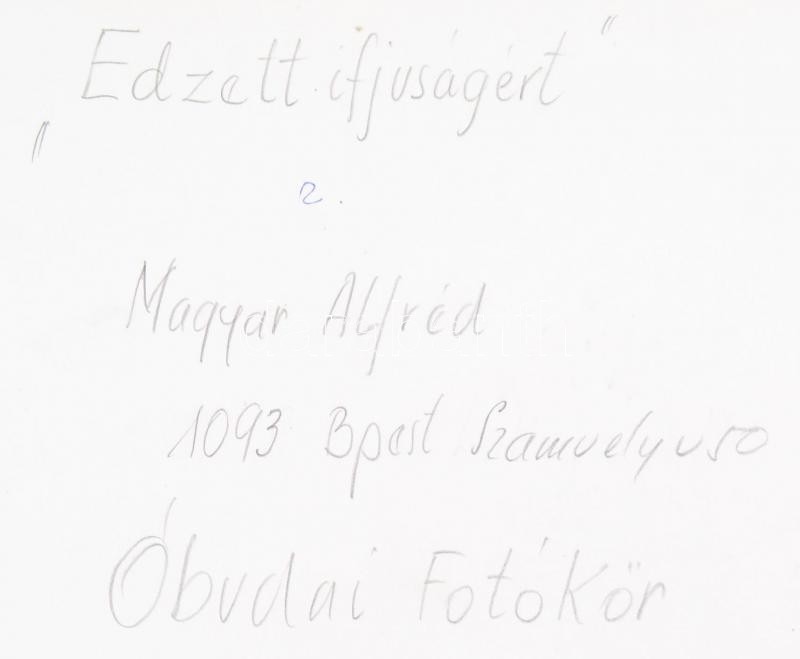 „Edzett ifjuságért”
2.
Magyar Alfréd
1093 Bpest Szamuely u 50
Óbudai Fotókör